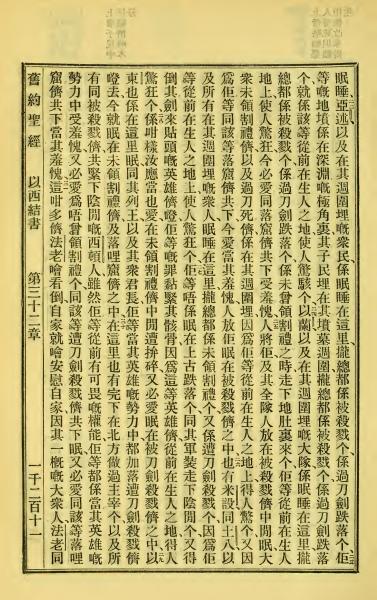 眠睡亞述以及在其週圍埋嘅衆民係眠睡在這里攏總都係被殺戮个係過刀劍跌落个佢
等嘅地墳係在深淵嘅極角裏其子民埋在其墳墓週圍攏總都係被殺戮个係過刀劍跌落
个就係該等從前在生人之地使人驚駭个以蘭以及在其週圍埋嘅大隊係眠睡在這里攏
總都係被殺戮个係過刀劍跌落个係未曾領割禮之時走下地肚裏來个佢等從前在生人之
地上使人驚狂今必愛同落窟儕共下受人羞愧人將佢及其全隊人放在被殺戮儕中間眠大
衆未領割禮儕以及過刀死儕係在其週圍埋因爲佢等從前在生人之地上得人驚个又因
爲佢等同該等落窟儕共下今愛當其羞愧人放佢眠在被殺戮儕之中也有米設同土八以
及所有在其週圍埋嘅衆人眠睡在這里攏總都係未領割禮个又係遭刀劍殺戮个因爲佢
等從前在生人之地上使人驚狂个佢等唔係眠在上古跌落个同其軍裝走下陰間个又得
倒其劍來貼頭嘅英雄儕佢等嘅罪黏緊其骸骨因爲這等英雄儕從前在生人之地得人
驚狂个係咁樣汝應當也愛在未領割禮儕中間遭拚碎又必愛眠在被刀劍殺戮儕之中以
東也係在這里眠同其列王以及其衆君長佢等當其英雄嘅勢力中都加落遭刀劍殺戮儕
去今就眠在未領割禮儕及落哩窟儕之中在這里也有完下在北方做過主宰个以及所
有同被殺戮儕共緊下陰間嘅西頓人雖然佢等從前有可畏嘅權能佢等都係當其英雄嘅
勢力中受羞愧又必愛爲唔曾領割禮个同該等遭刀劍殺戮儕共下眠又必愛同該等落哩
窟儕共下當其羞愧這咁多儕法老噲看倒自家就噲安慰自家因其一概嘅大衆人法老同
舊約聖經 以西結書 第三十二章 一千二百十一